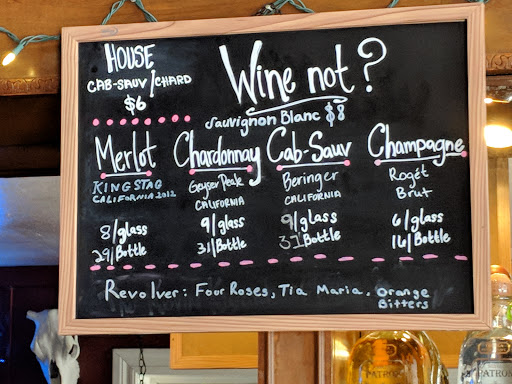 HOUSE
CAB-SAUV/CHARD
$6
Wine not?
Sauvignon Blanc $8
Merlot
KINGSTAG
CALIFORNIA 2012
8/glass
29/Bottle
Chardonnay
Geyser Peak
CALIFORNIA
9/glass
31/Bottle
Cab-Sauv
Beringer
CALIFORNIA
9/glass
37/Bottle
Champagne
Rogét
Brut
6/glass
16/Bottle
Revolver: Four Roses, Tia Maria, Orange
Bitters
PATRÓN
PATRÓN